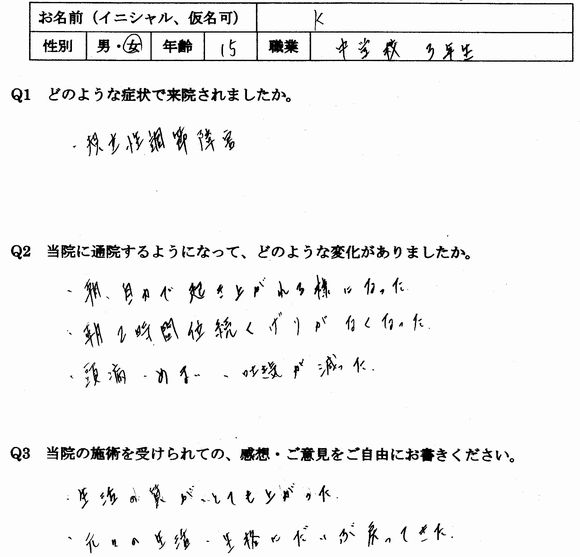 お名前（イニシャル、仮名可） K
性別 男・女 年齢 15 職業 中学校 3年生
Q1 どのような症状で来院されましたか。
・起立性調節障害
Q2 当院に通院するようになって、どのような変化がありましたか。
・朝、自力で起き上がれる様になった
・朝2時間位続くげりがなくなった.
・頭痛・めまい・吐気が減った.
Q3 当院の施術を受けられての、感想・ご意見をご自由にお書きください。
・生活の質がとても上がった.
・元々の生活・性格にだいぶ戻ってきた.